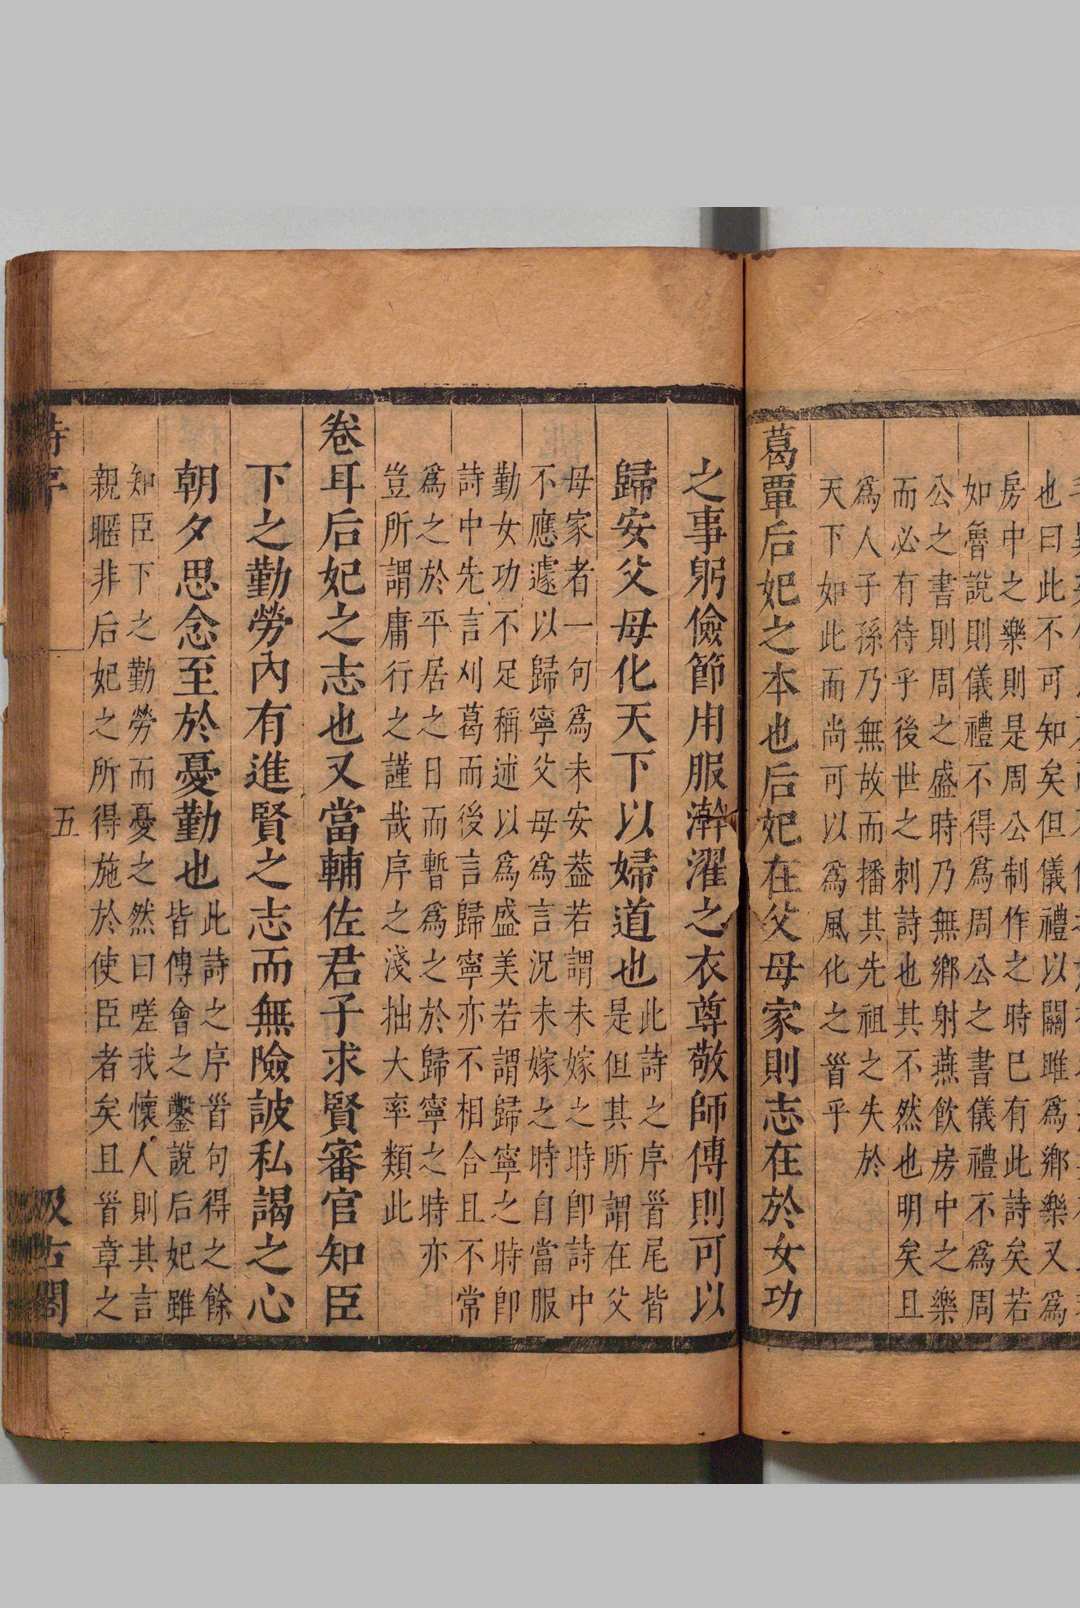 也曰此不可知矣但儀禮以關雎為鄉樂又為
房中之樂則是周公制作之時已有此詩矣若
如魯說則儀禮不得為周公之書儀禮不為周
公之書則周之盛時乃無鄉射燕飲房中之樂
而必有待乎後世之刺詩也其不然也明矣且
為人子孫乃無故而播其先祖之失於
天下如此而尚可以為風化之首乎
葛覃后妃之本也后妃在父母家則志在於女功
之事躬儉節用服澣濯之衣尊敬師傅則可以
歸安父母化天下以婦道也
此詩之序首尾皆
是但其所謂在父
母家者一句為未安葢若謂未嫁之時卽詩中
不應遽以歸寧父母為言況未嫁之時自當服
勤女功不足稱述以為盛美若謂歸寧之時卽
詩中先言刈葛而後言歸寧亦不相合且不常
為之於平居之日而暫為之於歸寧之時亦
豈所謂庸行之謹哉序之淺拙大率類此
卷耳后妃之志也又當輔佐君子求賢審官知臣
下之勤勞內有進賢之志而無險詖私謁之心
朝夕思念至於憂勤也
此詩之序首句得之餘
皆傅會之鑿說后妃雖
知臣下之勤勞而憂之然曰嗟我懷人則其言
親暱非后妃之所得施於使臣者矣且首章之
詩序
五
汲古閣